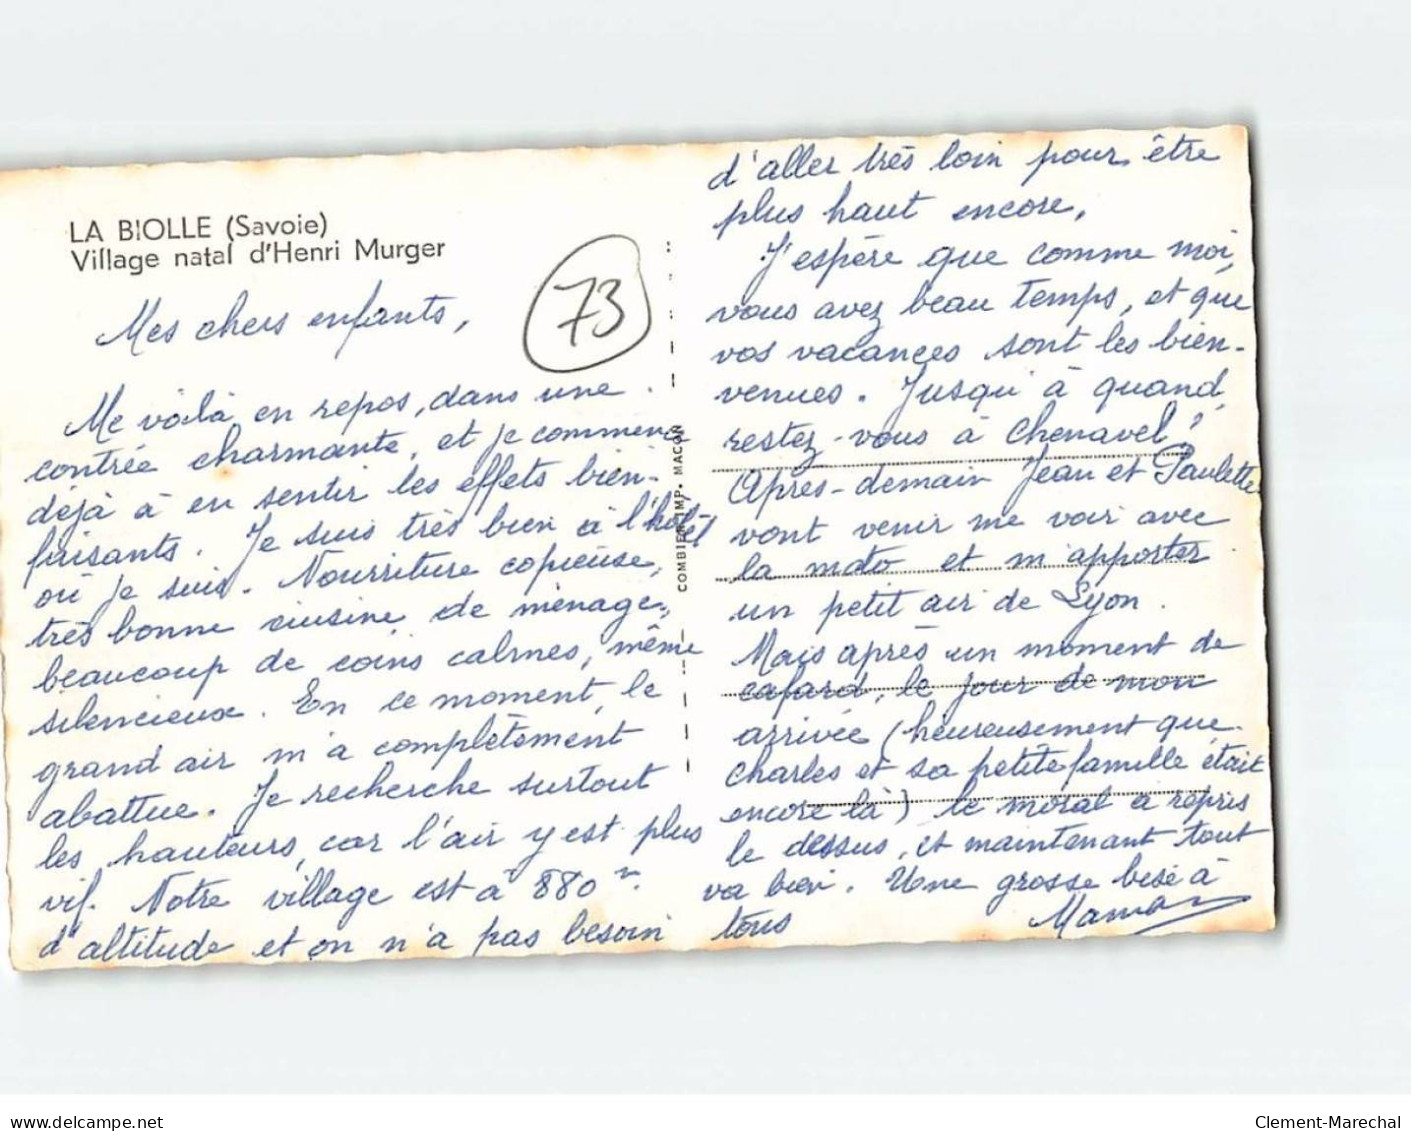 LA BIOLLE (Savoie)
Village natal d'Henri Murger
73
Mes chers enfants,
Me voilà en repos, dans une
contrée charmante, et je commence
déjà à en sentir les effets bien-
faisants. Je suis très bien à l'hôtel
où je suis. Nourriture copieuse,
très bonne cuisine de ménage,
beaucoup de coins calmes, même
silencieux. En ce moment, le
grand air m'a complètement
abattue. Je recherche surtout
les hauteurs, car l'air y est plus
vif. Notre village est à 880 m.
d'altitude et on n'a pas besoin
COMBIER IMP. MACON
d'aller très loin pour être
plus haut encore.
J'espère que comme moi,
vous avez beau temps, et que
vos vacances sont les bien-
venues. Jusqu'à quand
restez-vous à Chenavel ?
Après-demain Jean et Paulette
vont venir me voir avec
la moto et m'apporter
un petit air de Lyon.
Mais après un moment de
cafard, le jour de mon
arrivée (heureusement que
Charles et sa petite famille était
encore là) le moral a repris
le dessus, et maintenant tout
va bien. Une grosse bise à
tous Maman
Clement-Marechal